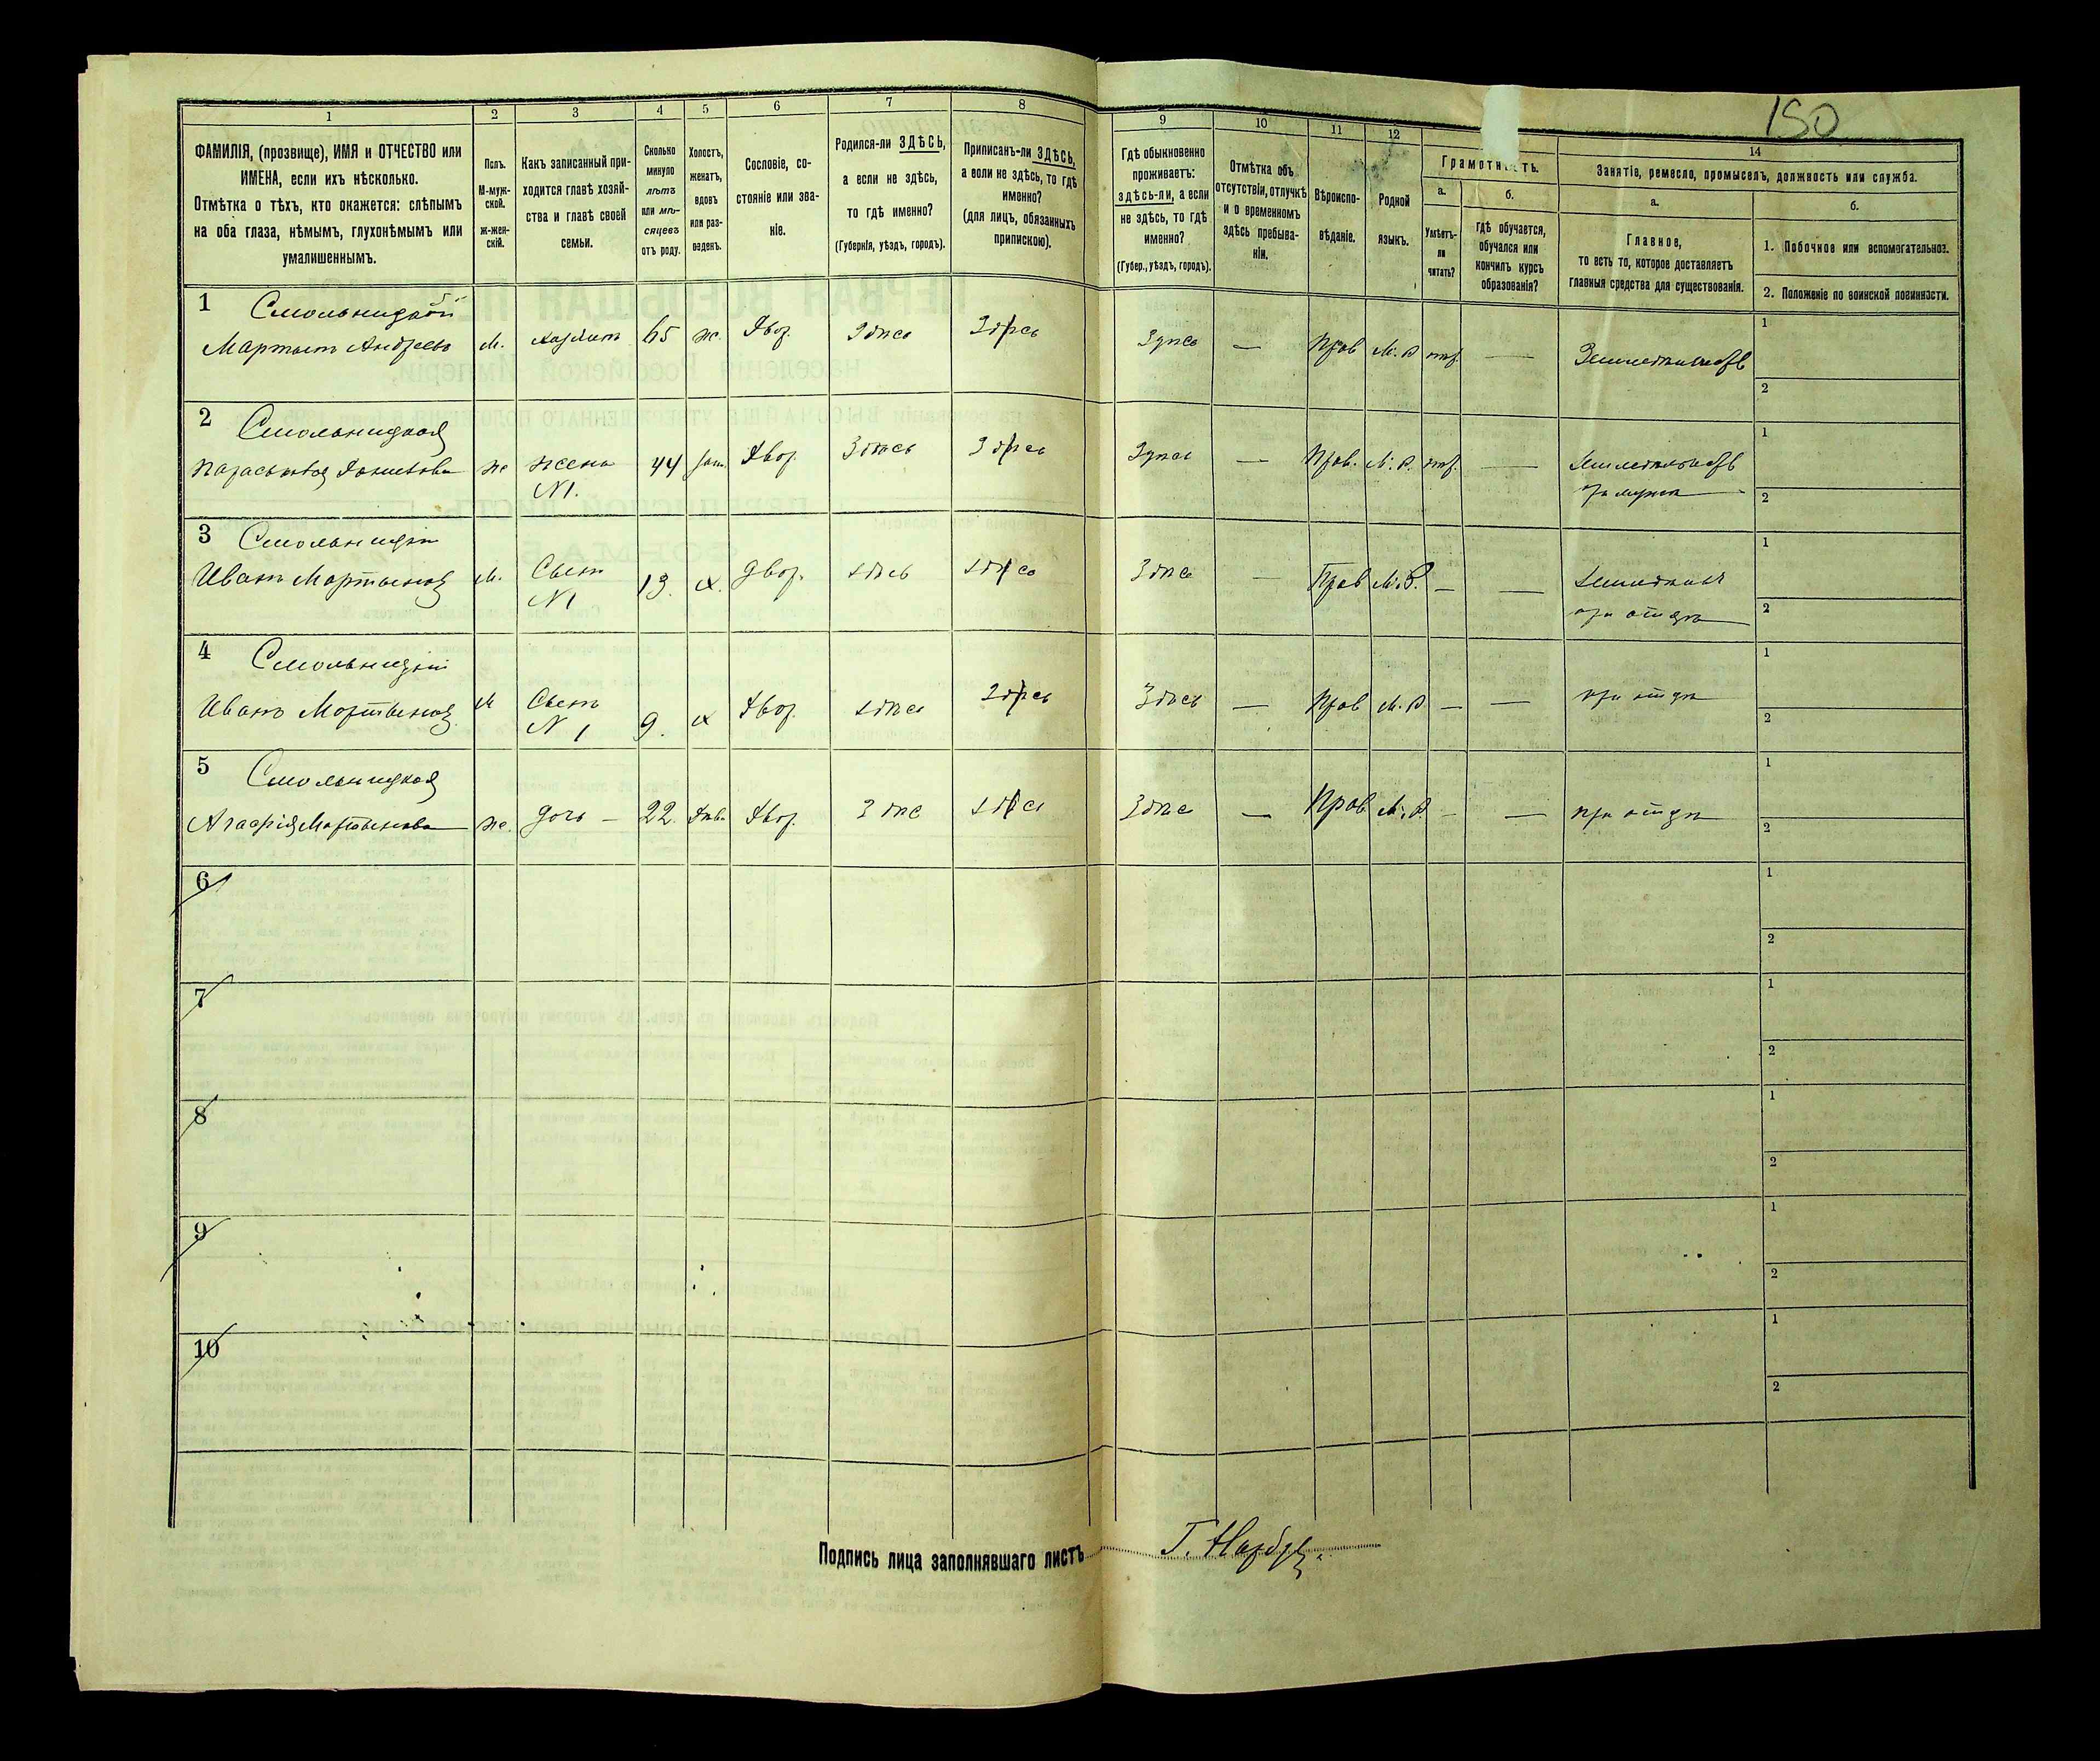 150
1
2
3
4
5
6
7
8
9
10
11
12
14
ФАМИЛІЯ, (прозвище), ИМЯ и ОТЧЕСТВО или
ИМЕНА, если ихъ нѣсколько.
Отмѣтка о тѣхъ, кто окажется: слѣпымъ
на оба глаза, нѣмымъ, глухонѣмымъ или
умалишеннымъ.
Полъ.
М-муж-
ской.
ж-жен-
скій.
Какъ записанный при-
ходится главѣ хозяй-
ства и главѣ своей
семьи.
Сколько
минуло
лѣтъ
или мѣ-
сяцевъ
отъ роду.
Холостъ,
женатъ,
вдовъ
или раз-
веденъ.
Сословіе, со-
стояніе или зва-
ніе.
Родился-ли ЗДѢСЬ,
а если не здѣсь,
то гдѣ именно?
(Губернія, уѣздъ, городъ).
Приписанъ-ли ЗДѢСЬ,
а если не здѣсь, то гдѣ
именно?
(для лицъ, обязанныхъ
припискою).
Гдѣ обыкновенно
проживаетъ:
здѣсь-ли, а если
не здѣсь, то гдѣ
именно?
(Губер., уѣздъ, городъ).
Отмѣтка объ
отсутствіи, отлучкѣ
и о временномъ
здѣсь пребыва-
ніи.
Вѣроиспо-
вѣданіе.
Родной
языкъ.
Грамотн ть.
а.
Умѣетъ-
ли
читать?
б.
Гдѣ обучается,
обучался или
кончилъ курсъ
образованія?
Занятіе, ремесло, промыселъ, должность или служба.
а.
Главное,
то есть то, которое доставляетъ
главныя средства для существованія.
б.
1. Побочное или вспомогательное.
2. Положеніе по воинской повинности.
1 Смольницкій
Мартынъ Андреевъ М. 65 ж. Двор. Здѣсь Здѣсь Здѣсь — Прав М. Р. — 1
2
2 Смольницкая
Параськовія же жена 44 зам. Двор. Здѣсь Здѣсь Здѣсь — Прав. М. Р. — 1
N1. при мужѣ 2
3 Смольницкій
Иванъ Мартыновъ М. Сынъ 13. х. Двор. Здѣсь Здѣсь Здѣсь — Прав М. Р. — — 1
N1 при отцѣ 2
4 Смольницкій
Иванъ Мартыновъ М Сынъ 9. х Двор. Здѣсь Здѣсь Здѣсь — Прав М. Р. — — при отцѣ 1
N1 2
5 Смольницкая
Агафія Мартынова же. дочь — 22. Двор. Здѣсь Здѣсь Здѣсь — Прав М. Р. — — при отцѣ 1
2
6 1
2
7 1
2
8 1
2
9 1
2
10 1
2
Подпись лица заполнявшаго листъ